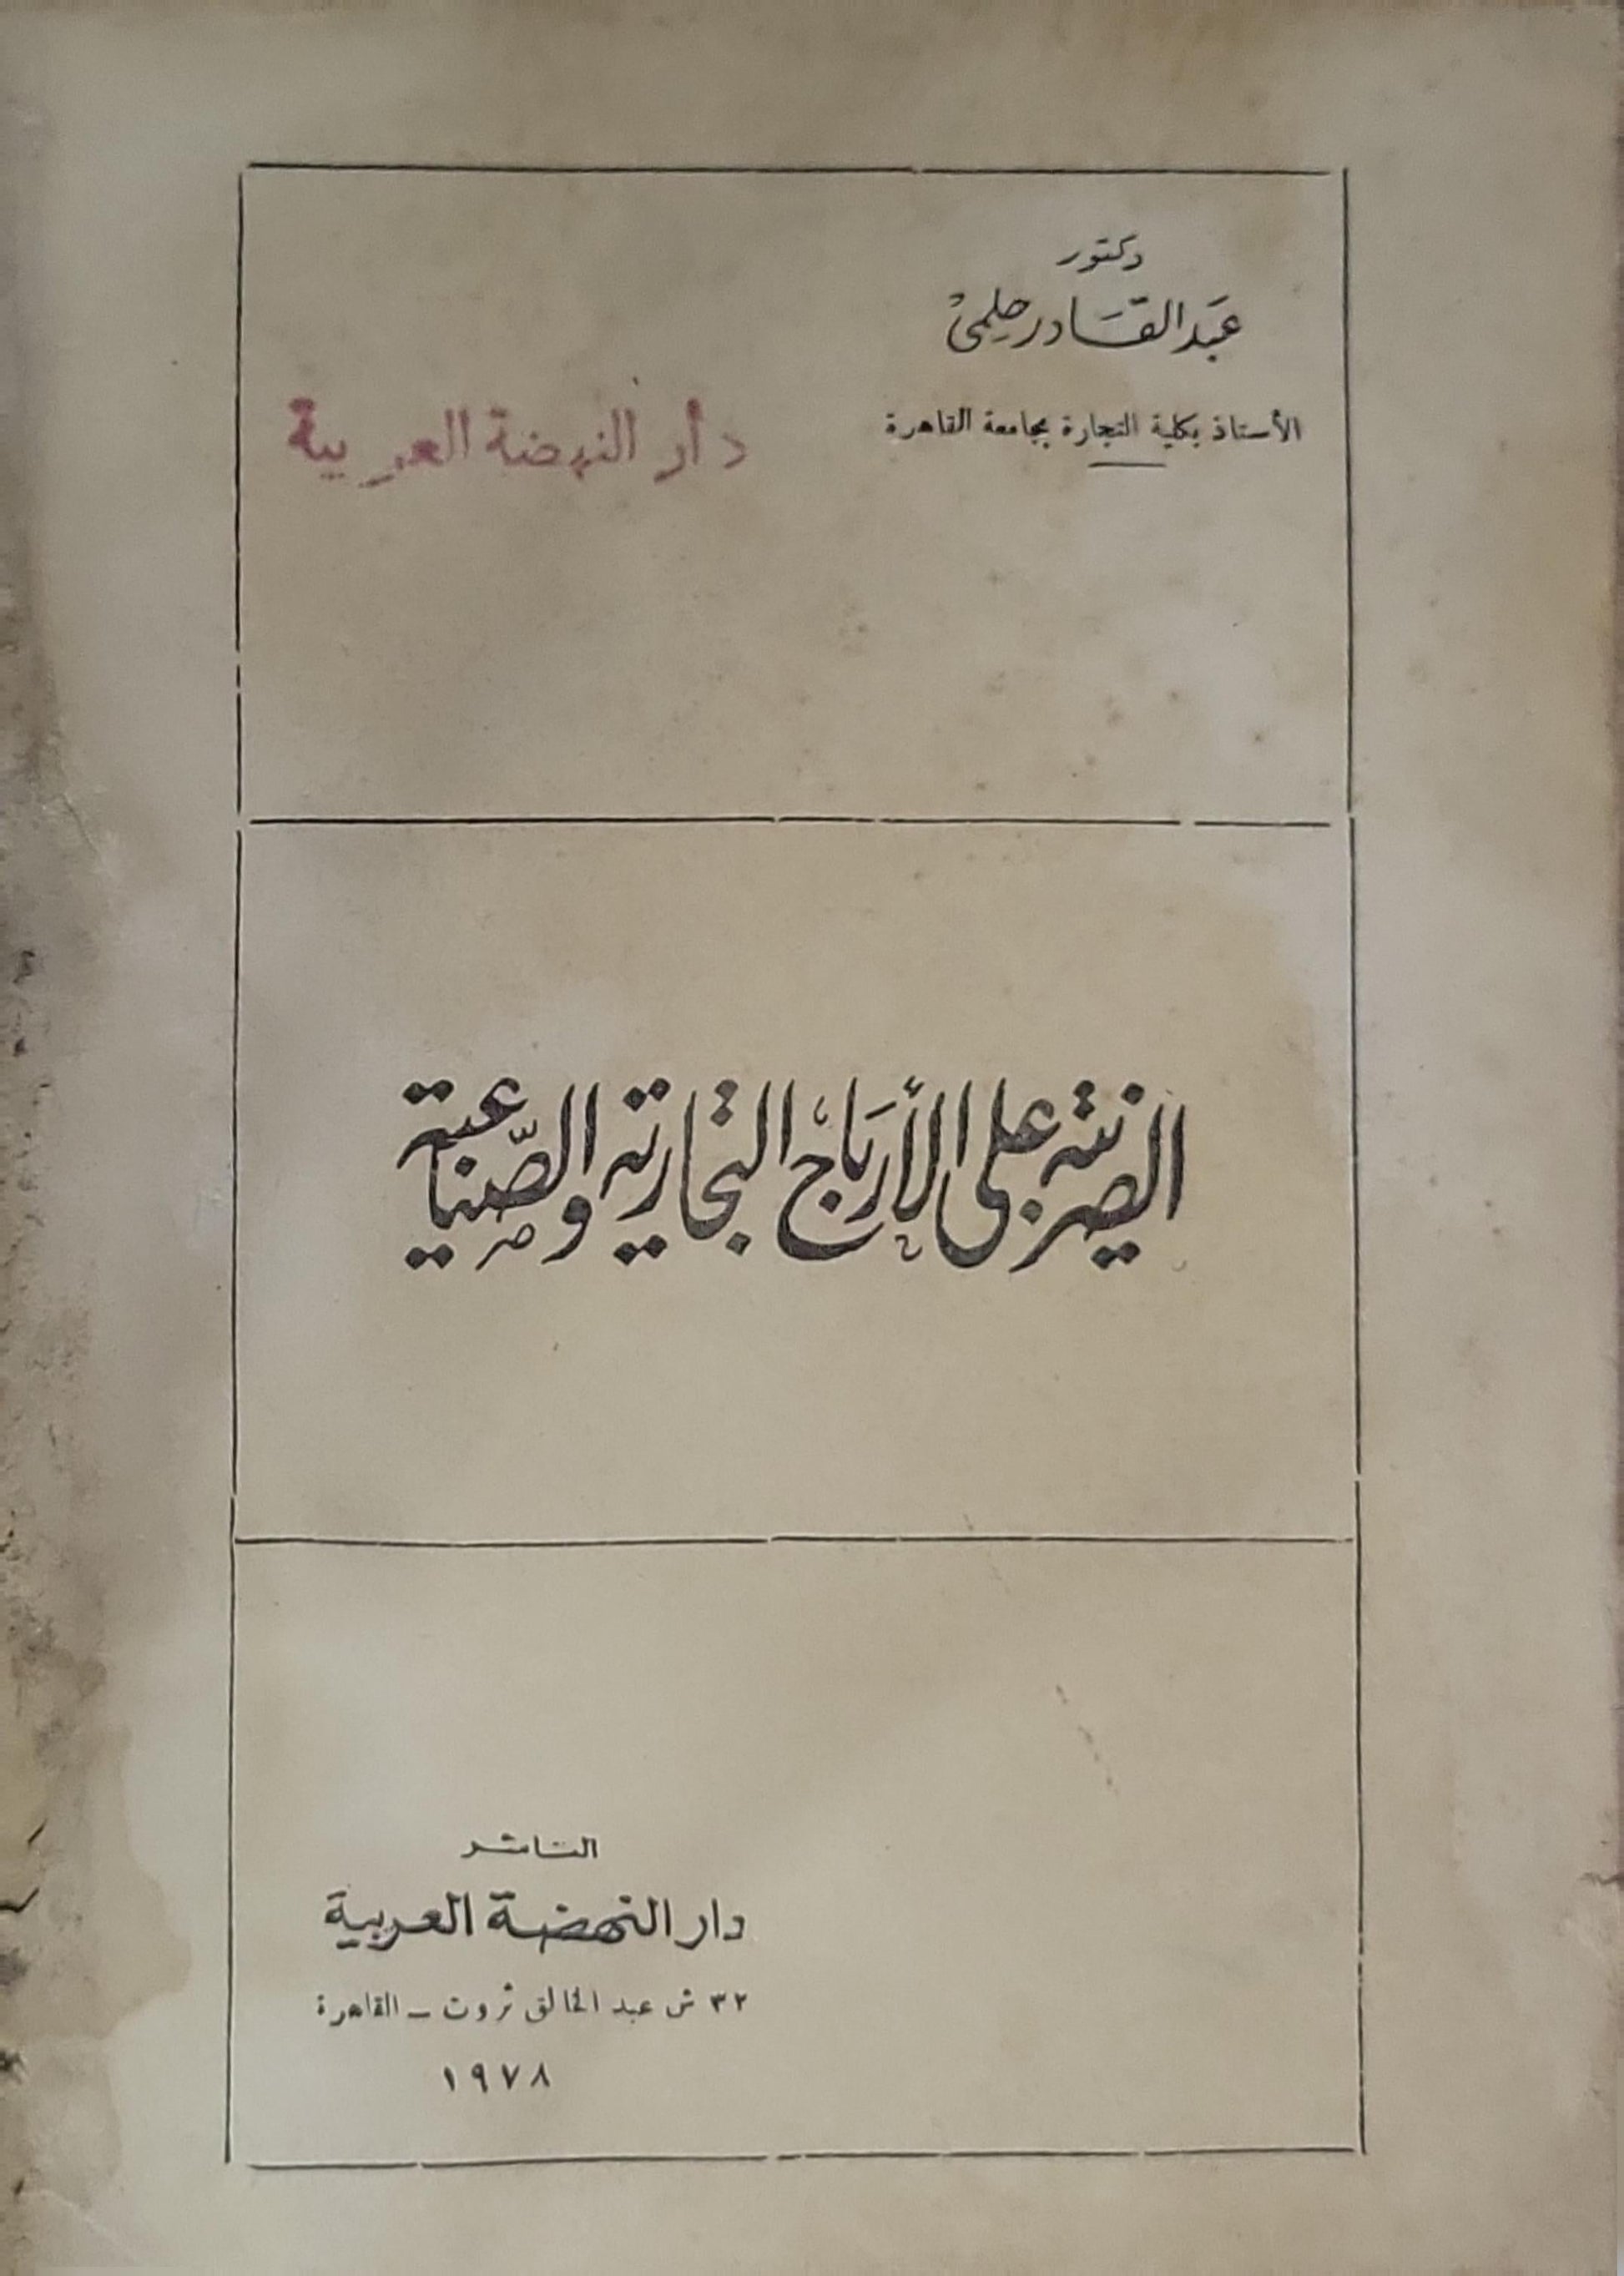 دكتور
عَبد القَادر حلمى
الأستاذ بكلية التجارة بجامعة القاهرة
دار النهضة العربية
الضريبة على الأرباح التجارية والصّناعية
الناشر
دار النهضة العربية
٣٢ ش عبد الخالق ثروت - القاهرة
١٩٧٨